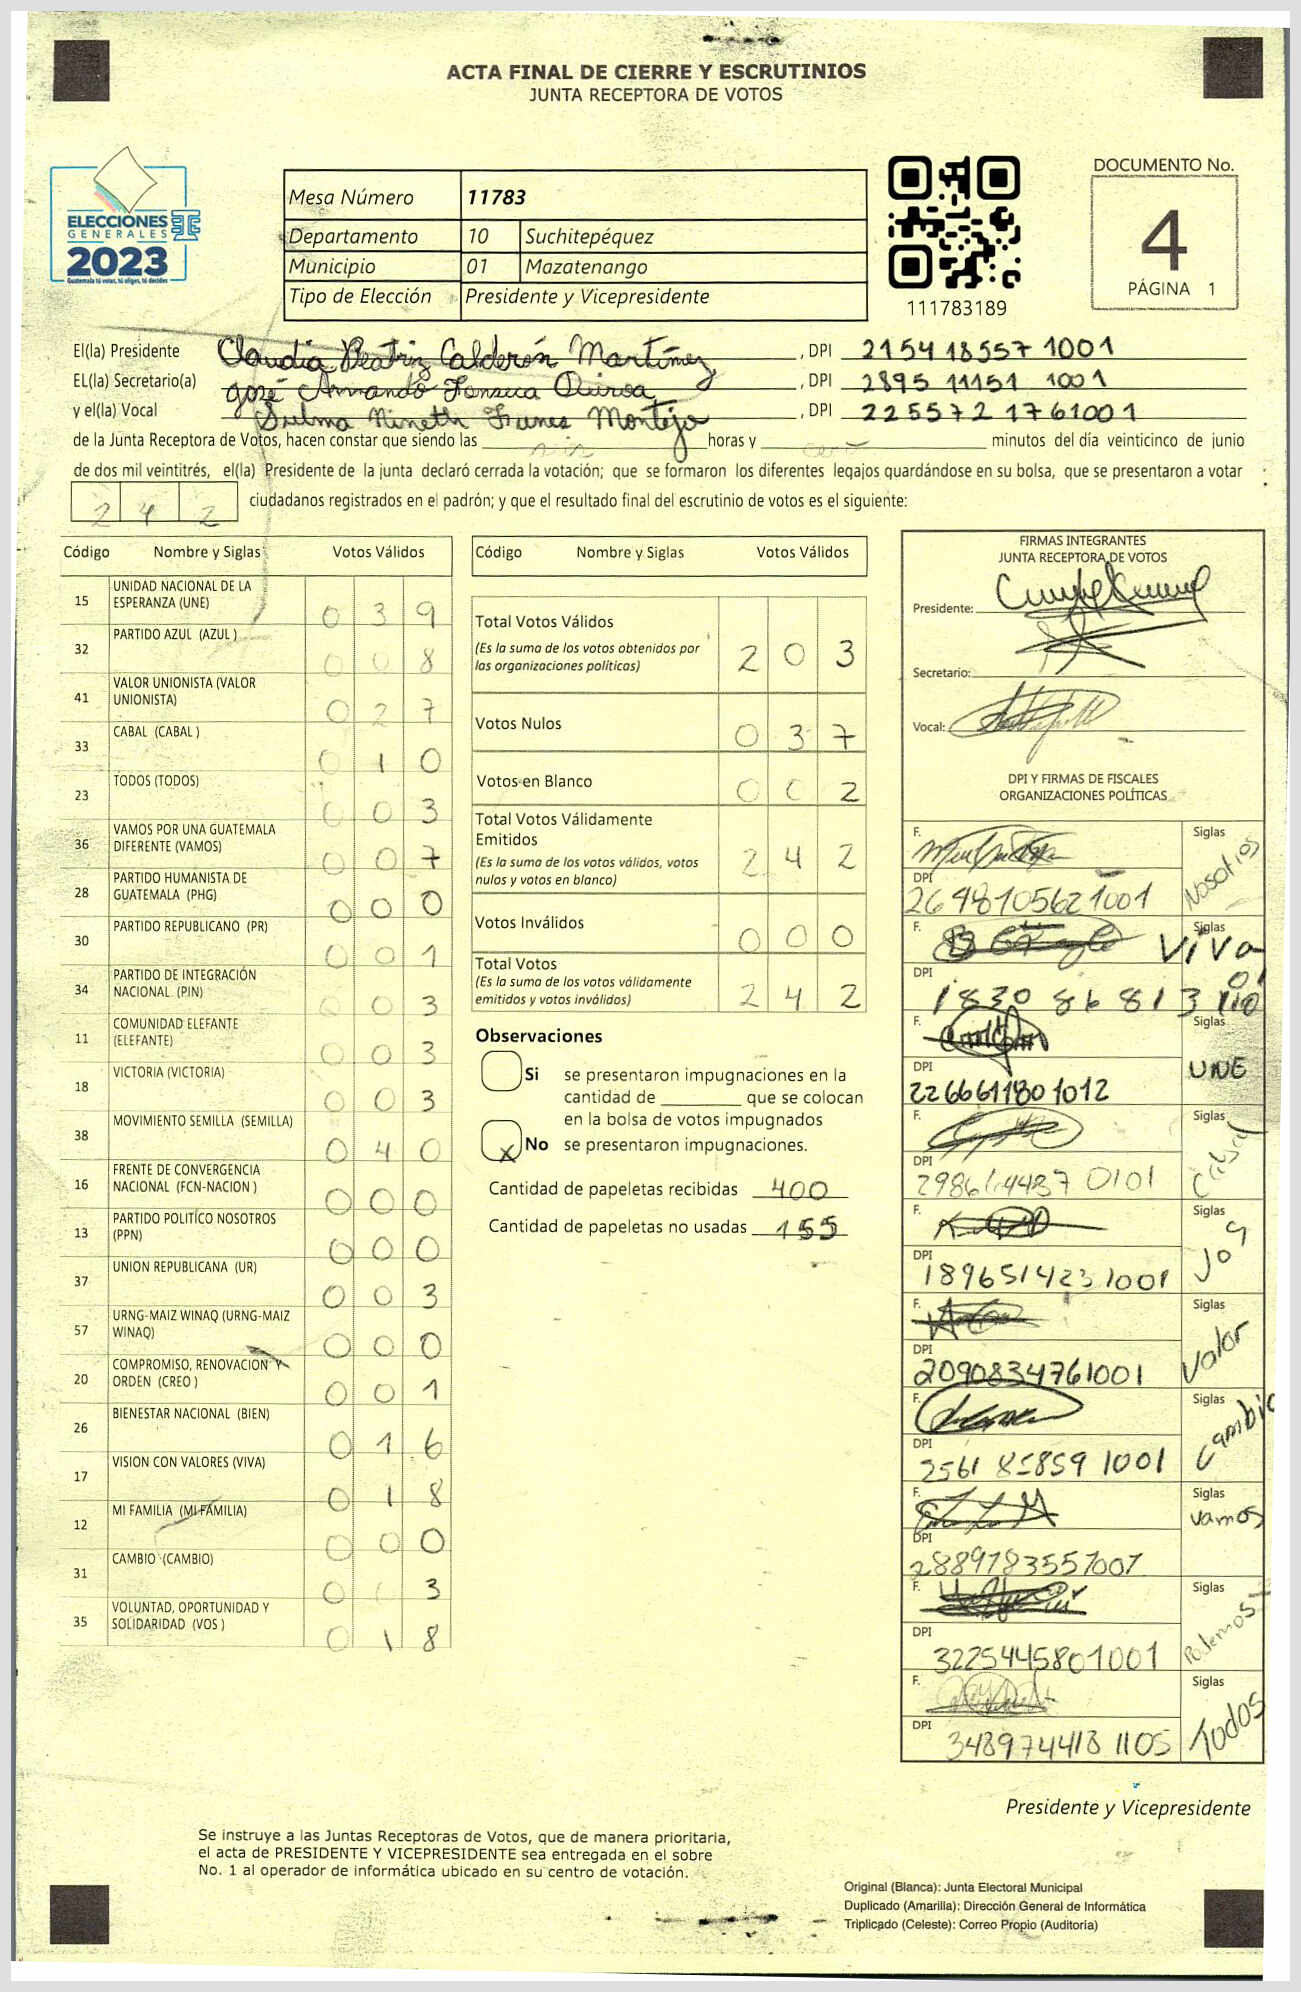 ACTA FINAL DE CIERRE Y ESCRUTINIOS
JUNTA RECEPTORA DE VOTOS
ELECCIONES
GENERALES
2023
Guatemala tú votas, tú eliges, tú decides
Mesa Número 11783
Departamento 10 Suchitepéquez
Municipio 01 Mazatenango
Tipo de Elección Presidente y Vicepresidente
111783189
DOCUMENTO No.
4
PÁGINA 1
El(la) Presidente Claudia Beatriz Calderón Martínez, DPI 2154 18557 1001
EL(la) Secretario(a) José Armando Fonseca Quiroa, DPI 2895 11151 1001
y el(la) Vocal Sulma Nineth Funes Montejo, DPI 225572 1761001
de la Junta Receptora de Votos, hacen constar que siendo las horas y cero minutos del día veinticinco de junio
de dos mil veintitrés, el(la) Presidente de la junta declaró cerrada la votación; que se formaron los diferentes legajos quardándose en su bolsa, que se presentaron a votar
2 4 2 ciudadanos registrados en el padrón; y que el resultado final del escrutinio de votos es el siguiente:
Código Nombre y Siglas Votos Válidos
15 UNIDAD NACIONAL DE LA ESPERANZA (UNE) 0 3 9
32 PARTIDO AZUL (AZUL ) 0 0 8
41 VALOR UNIONISTA (VALOR UNIONISTA) 0 2 7
33 CABAL (CABAL ) 0 1 0
23 TODOS (TODOS) 0 0 3
36 VAMOS POR UNA GUATEMALA DIFERENTE (VAMOS) 0 0 7
28 PARTIDO HUMANISTA DE GUATEMALA (PHG) 0 0 0
30 PARTIDO REPUBLICANO (PR) 0 0 1
34 PARTIDO DE INTEGRACIÓN NACIONAL (PIN) 0 0 3
11 COMUNIDAD ELEFANTE (ELEFANTE) 0 0 3
18 VICTORIA (VICTORIA) 0 0 3
38 MOVIMIENTO SEMILLA (SEMILLA) 0 4 0
16 FRENTE DE CONVERGENCIA NACIONAL (FCN-NACION ) 0 0 0
13 PARTIDO POLITICO NOSOTROS (PPN) 0 0 0
37 UNION REPUBLICANA (UR) 0 0 3
57 URNG-MAIZ WINAQ (URNG-MAIZ WINAQ) 0 0 0
20 COMPROMISO, RENOVACION Y ORDEN (CREO ) 0 0 1
26 BIENESTAR NACIONAL (BIEN) 0 1 6
17 VISION CON VALORES (VIVA) 0 1 8
12 MI FAMILIA (MI FAMILIA) 0 0 0
31 CAMBIO (CAMBIO) 0 0 3
35 VOLUNTAD, OPORTUNIDAD Y SOLIDARIDAD (VOS ) 0 1 8
Código Nombre y Siglas Votos Válidos
Total Votos Válidos 2 0 3
(Es la suma de los votos obtenidos por
las organizaciones políticas)
Votos Nulos 0 3 7
Votos en Blanco 0 0 2
Total Votos Válidamente
Emitidos 2 4 2
(Es la suma de los votos válidos, votos
nulos y votos en blanco)
Votos Inválidos 0 0 0
Total Votos 2 4 2
(Es la suma de los votos válidamente
emitidos y votos inválidos)
Observaciones
Si se presentaron impugnaciones en la
cantidad de ________ que se colocan
en la bolsa de votos impugnados
x No se presentaron impugnaciones.
Cantidad de papeletas recibidas 400
Cantidad de papeletas no usadas 155
FIRMAS INTEGRANTES
JUNTA RECEPTORA DE VOTOS
Presidente:
Secretario:
Vocal:
DPI Y FIRMAS DE FISCALES
ORGANIZACIONES POLÍTICAS
F. Siglas Nosotros
DPI 2648105621001
F. Siglas Viva
DPI 1830 86813
F. Siglas UNE
DPI 2266611801012
F. Siglas Cabal
DPI
F. Siglas
DPI 1896514231001
F. Siglas Valor
DPI 2090834761001
F. Siglas Cambio
DPI 2561 85859 1001
F. Siglas Vamos
DPI 2889783557001
F. Siglas Podemos
DPI 3225445801001
F. Siglas Todos
DPI 348974418 1105
Presidente y Vicepresidente
Se instruye a las Juntas Receptoras de Votos, que de manera prioritaria,
el acta de PRESIDENTE Y VICEPRESIDENTE sea entregada en el sobre
No. 1 al operador de informática ubicado en su centro de votación.
Original (Blanca): Junta Electoral Municipal
Duplicado (Amarilla): Dirección General de Informática
Triplicado (Celeste): Correo Propio (Auditoría)